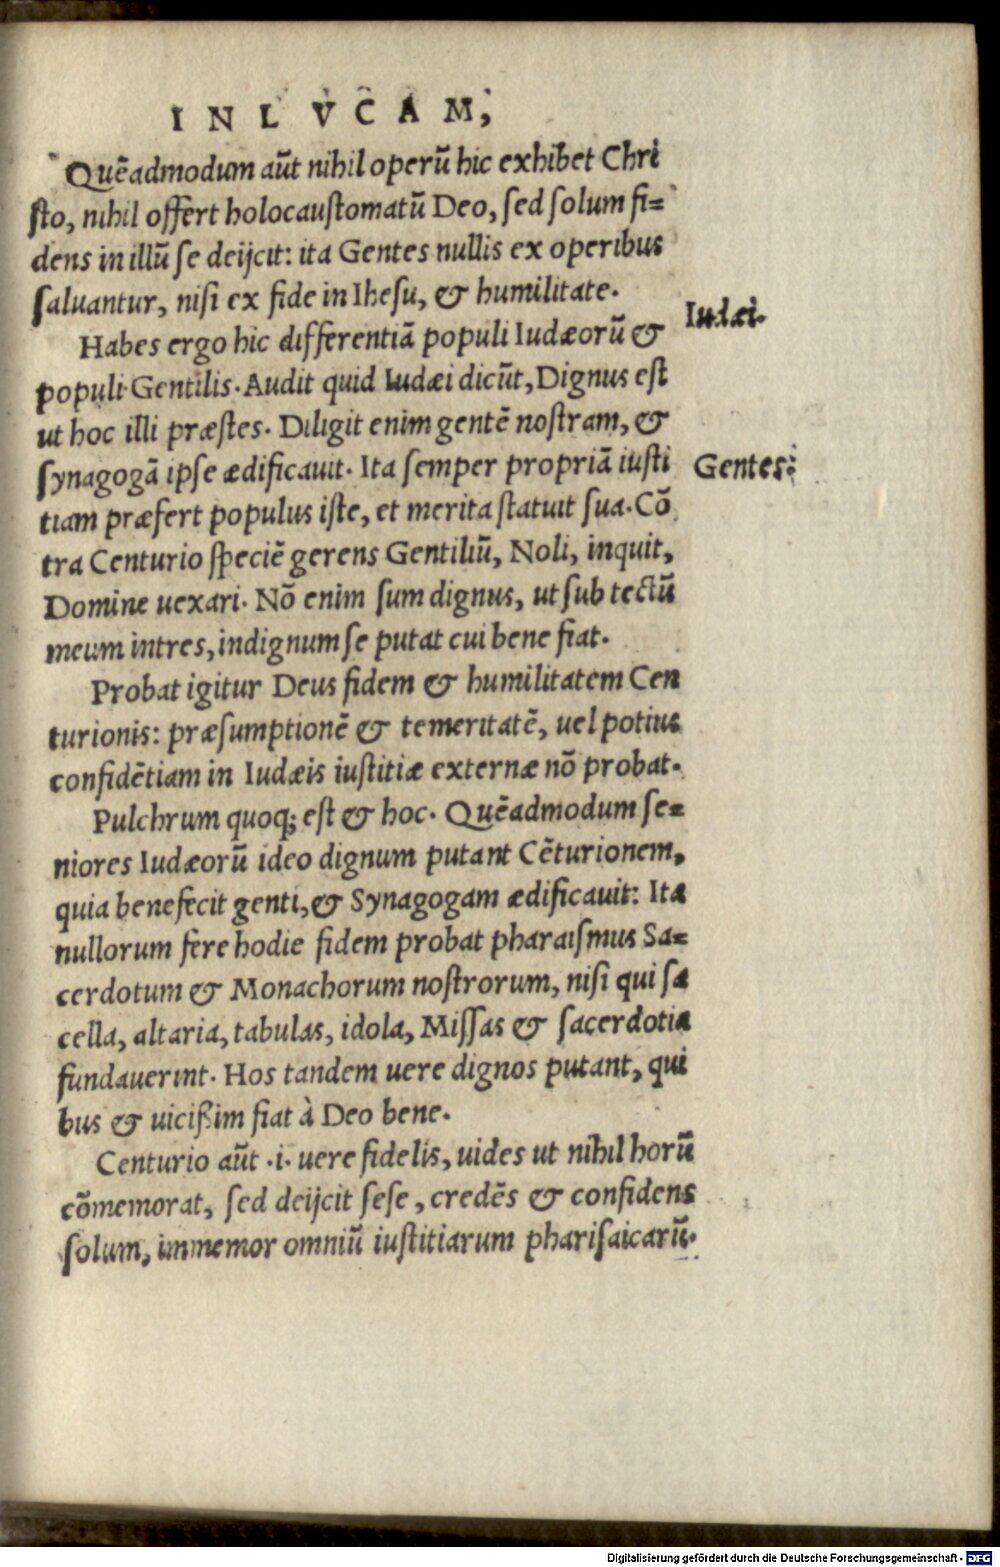 IN LVCAM,
Quēadmodum aūt nihil operū hic exhibet Chri
ſto, nihil offert holocauſtomatū Deo, ſed ſolum fi=
dens in illū ſe deijcit: ita Gentes nullis ex operibus
ſaluantur, niſi ex fide in Iheſu, & humilitate.
Iudæi.
Habes ergo hic differentiā populi Iudæorū &
populi Gentilis. Audit quid Iudæi dicūt, Dignus eſt
ut hoc illi præſtes. Diligit enim gentē noſtram, &
ſynagogā ipſe ædificauit. Ita ſemper propriā iuſti
Gentes.
tiam præfert populus iſte, et merita ſtatuit ſua. Cō
tra Centurio ſpeciē gerens Gentiliū, Noli, inquit,
Domine uexari. Nō enim ſum dignus, ut ſub tectū
meum intres, indignum ſe putat cui bene fiat.
Probat igitur Deus fidem & humilitatem Cen
turionis: præſumptionē & temeritatē, uel potius
confidētiam in Iudæis iuſtitiæ externæ nō probat.
Pulchrum quoq; eſt & hoc. Quēadmodum ſe=
niores Iudæorū ideo dignum putant Cēturionem,
quia benefecit genti, & Synagogam ædificauit: Ita
nullorum fere hodie fidem probat pharaiſmus Sa=
cerdotum & Monachorum noſtrorum, niſi qui ſa
cella, altaria, tabulas, idola, Miſſas & ſacerdotia
fundauerint. Hos tandem uere dignos putant, qui
bus & uicißim fiat à Deo bene.
Centurio aūt .i. uere fidelis, uides ut nihil horū
cōmemorat, ſed deijcit ſeſe, credēs & confidens
ſolum, immemor omniū iuſtitiarum phariſaicarū.
Digitalisierung gefördert durch die Deutsche Forschungsgemeinschaft - DFG